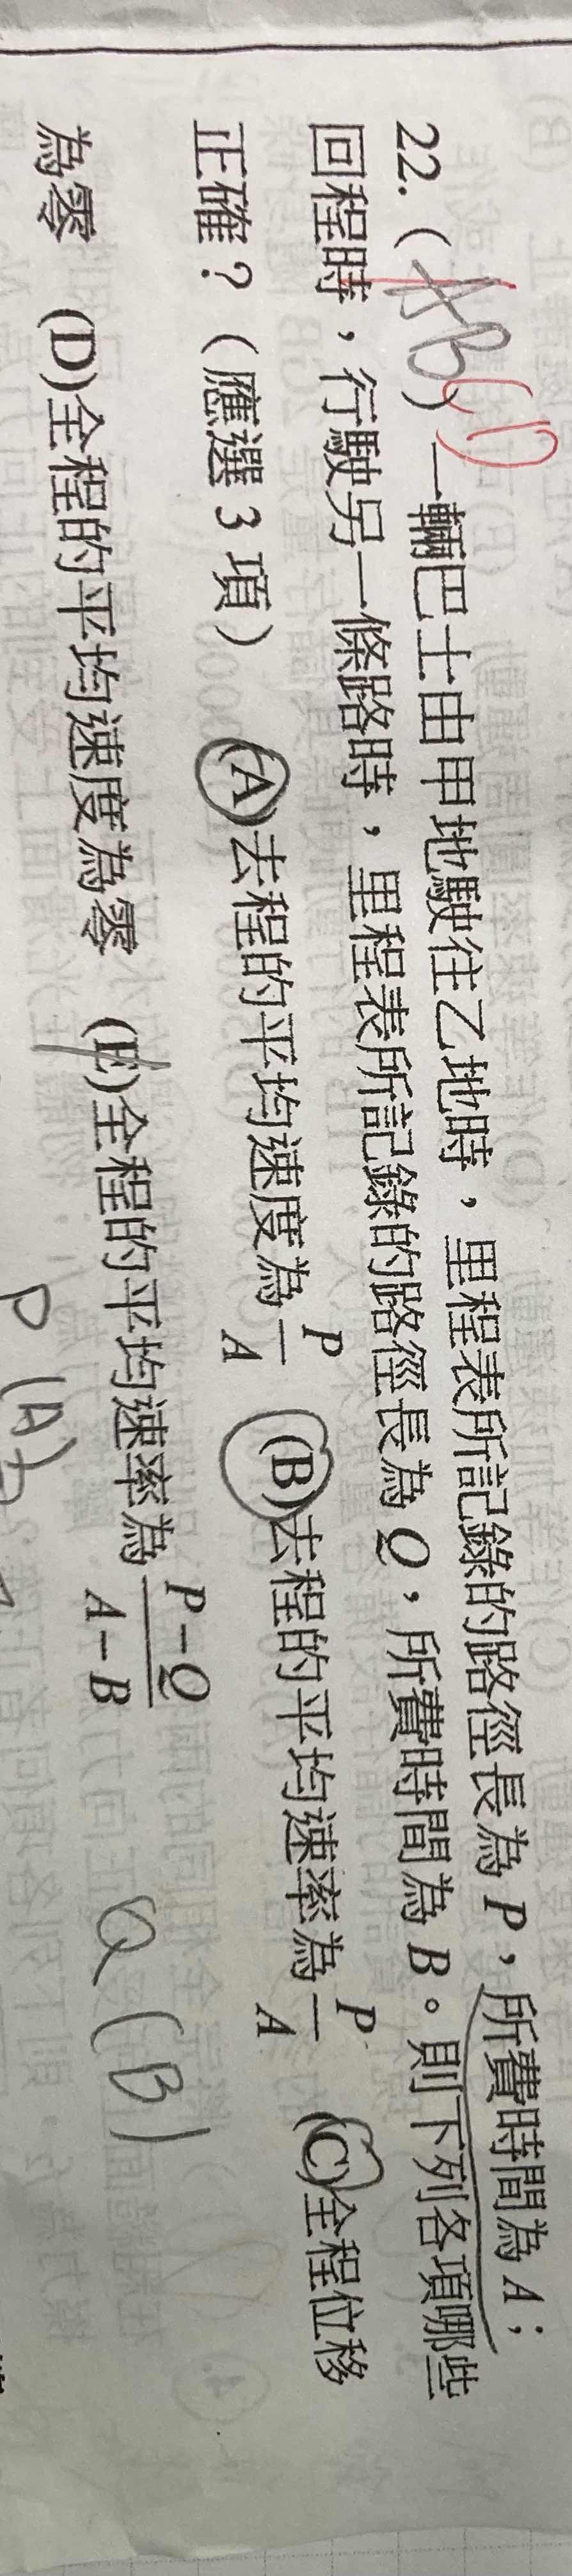 22.(ABCD)一輛巴士由甲地駛往乙地時，里程表所記錄的路徑長為 P，所費時間為 A；
回程時，行駛另一條路時，里程表所記錄的路徑長為 Q，所費時間為 B。則下列各項哪些
正確？（應選 3 項） (A)去程的平均速度為 P/A (B)去程的平均速率為 P/A (C)全程位移
為零 (D)全程的平均速度為零 (E)全程的平均速率為 P－Q/A－B
P (A) Q (B)